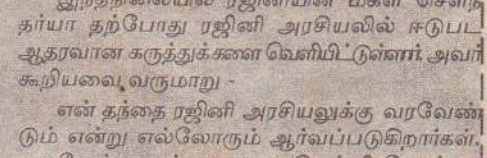 இந்நிலையில் ரஜினியின் மகள் சௌந்
தர்யா தற்போது ரஜினி அரசியலில் ஈடுபட
ஆதரவான கருத்துக்களை வெளியிட்டுள்ளார். அவர்
கூறியவை வருமாறு -
என் தந்தை ரஜினி அரசியலுக்கு வரவேண்
டும் என்று எல்லோரும் ஆர்வப்படுகிறார்கள்.